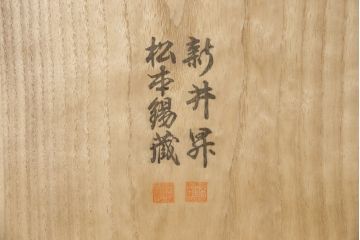 新井昇
松本錫藏